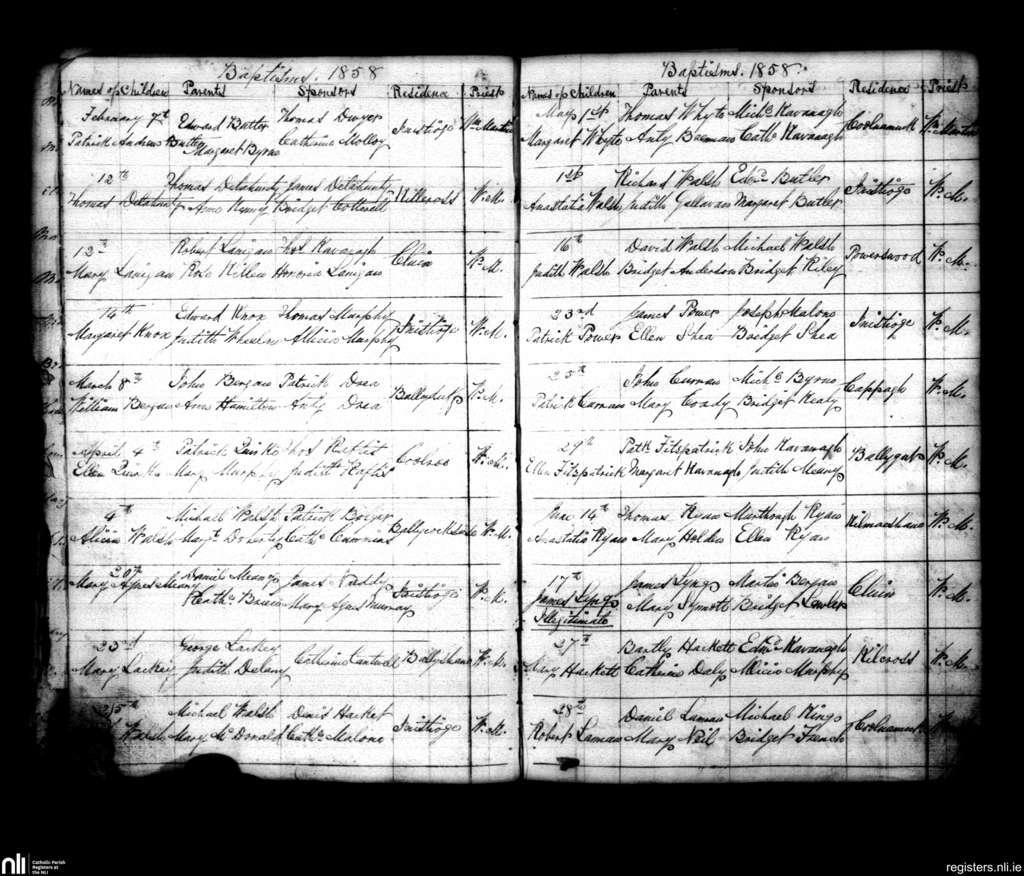 Baptisms. 1858
Names of Children Parents Sponsors Residence Priest
February 7th Edward Butler Thomas Dwyer Inistioge Wm Martin
Patrick Andrew Butler Margaret Byrne Catherine Molloy
12th Thomas Delahunty James Delahunty Killcross W. M.
Thomas Delahunty Anne Bridget Cotterell
12th Robert Lanigan Thos Kavanagh Cluin W. M.
Mary Lanigan Honoria Lanigan
14th Edward Knox Thomas Murphy Inistioge W. M.
Margaret Knox Judith Whealan Allicia Murphy
March 8th John Bergan Patrick Drea Ballyduff W. M.
William Bergan Anne Hamilton Anty Drea
April 4th Patrick Quirke Thos Coolroe W. M.
Ellen Quirke Mary Murphy Judith
4th Michael Walsh Patrick Bolger W. M.
Alicia Walsh Margt Doherty Cathe
20th Daniel Meany James Naddy Inistioge W. M.
Mary Agnes Meany Cathe Mary Agnes Murray
23rd George Larkey Catherine Cantwell Ballyshane W. M.
Mary Larkey Judith Delany
25th Michael Walsh Denis Hacket Inistioge W. M.
Walsh Mary Mc Donald Cathe Malone
Baptisms. 1858.
Names of Children Parents Sponsors Residence Priest
May 1st Thomas Whyte Michl Kavanagh Coolnamuck Wm Martin
Margaret Whyte Anty Brennan Cathe Kavanagh
1st Richard Walsh Edmd Butler Inistioge W. M.
Anastatia Walsh Judith Gallavan Margaret Butler
16th David Walsh Michael Walsh Powerswood W. M.
Judith Walsh Bridget Anderson Bridget Riley
23rd James Power Joseph Malone Inistioge W. M.
Patrick Power Ellen Shea Bridget Shea
25th John Curran Michl Byrne Cappagh W. M.
Patrick Curran Mary Coady Bridget Healy
29th Patk Fitzpatrick John Kavanagh Ballygub W. M.
Ellen Fitzpatrick Margaret Kavanagh Judith Meany
June 14th Thomas Ryan Murthough Ryan Kilmacshane W. M.
Anastatia Ryan Mary Holden Ellen Ryan
17th James Lyng Martin Bergan Cluin W. M.
James Lyng Mary Synnott Bridget Lawler
Illegitimate
27th Bartly Hackett Edmd Kavanagh Kilcross W. M.
Mary Hackett Catherine Daly Alicia Murphy
28th Daniel Laman Michael King Coolnamuck
Robert Laman Mary Neil Bridget French
nli Catholic Parish
Registers at
the NLI
registers.nli.ie